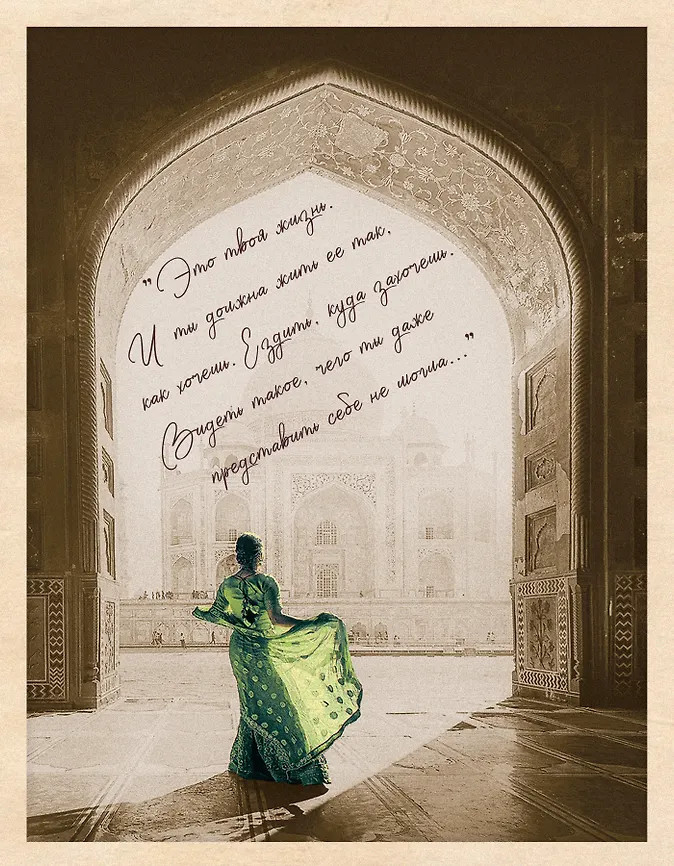 "Это твоя жизнь.
И ты должна жить ее так,
как хочешь. Ездить, куда захочешь.
Видеть такое, чего ты даже
представить себе не могла..."